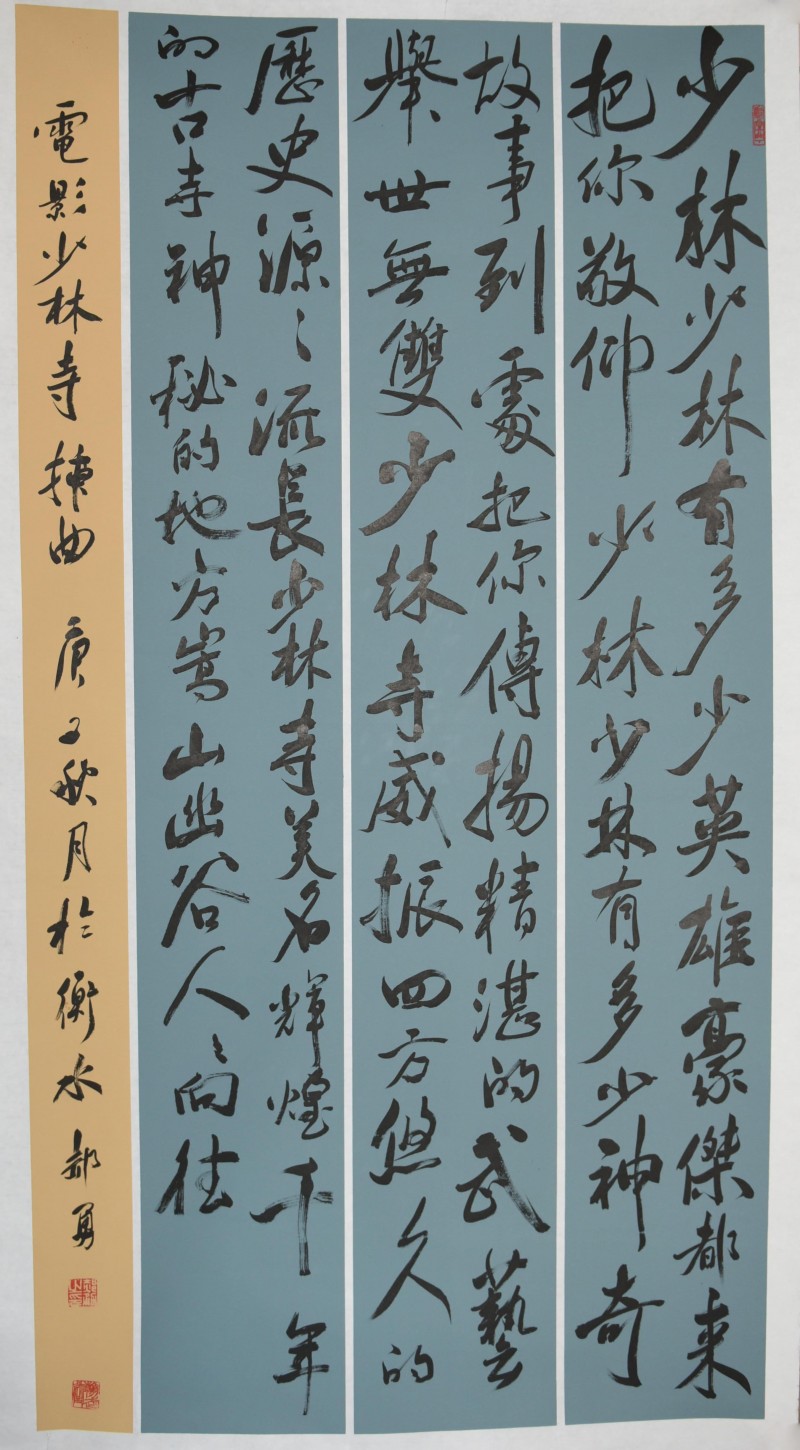 少林少林有多少英雄豪傑都来
把你敬仰少林少林有多少神奇
故事到處把你傳揚精湛的武藝
舉世無雙少林寺威振四方悠久的
歷史源〻流長少林寺美名輝煌千年
的古寺神秘的地方嵩山幽谷人〻向往
電影少林寺揷曲 庚子秋月於衡水 郝勇